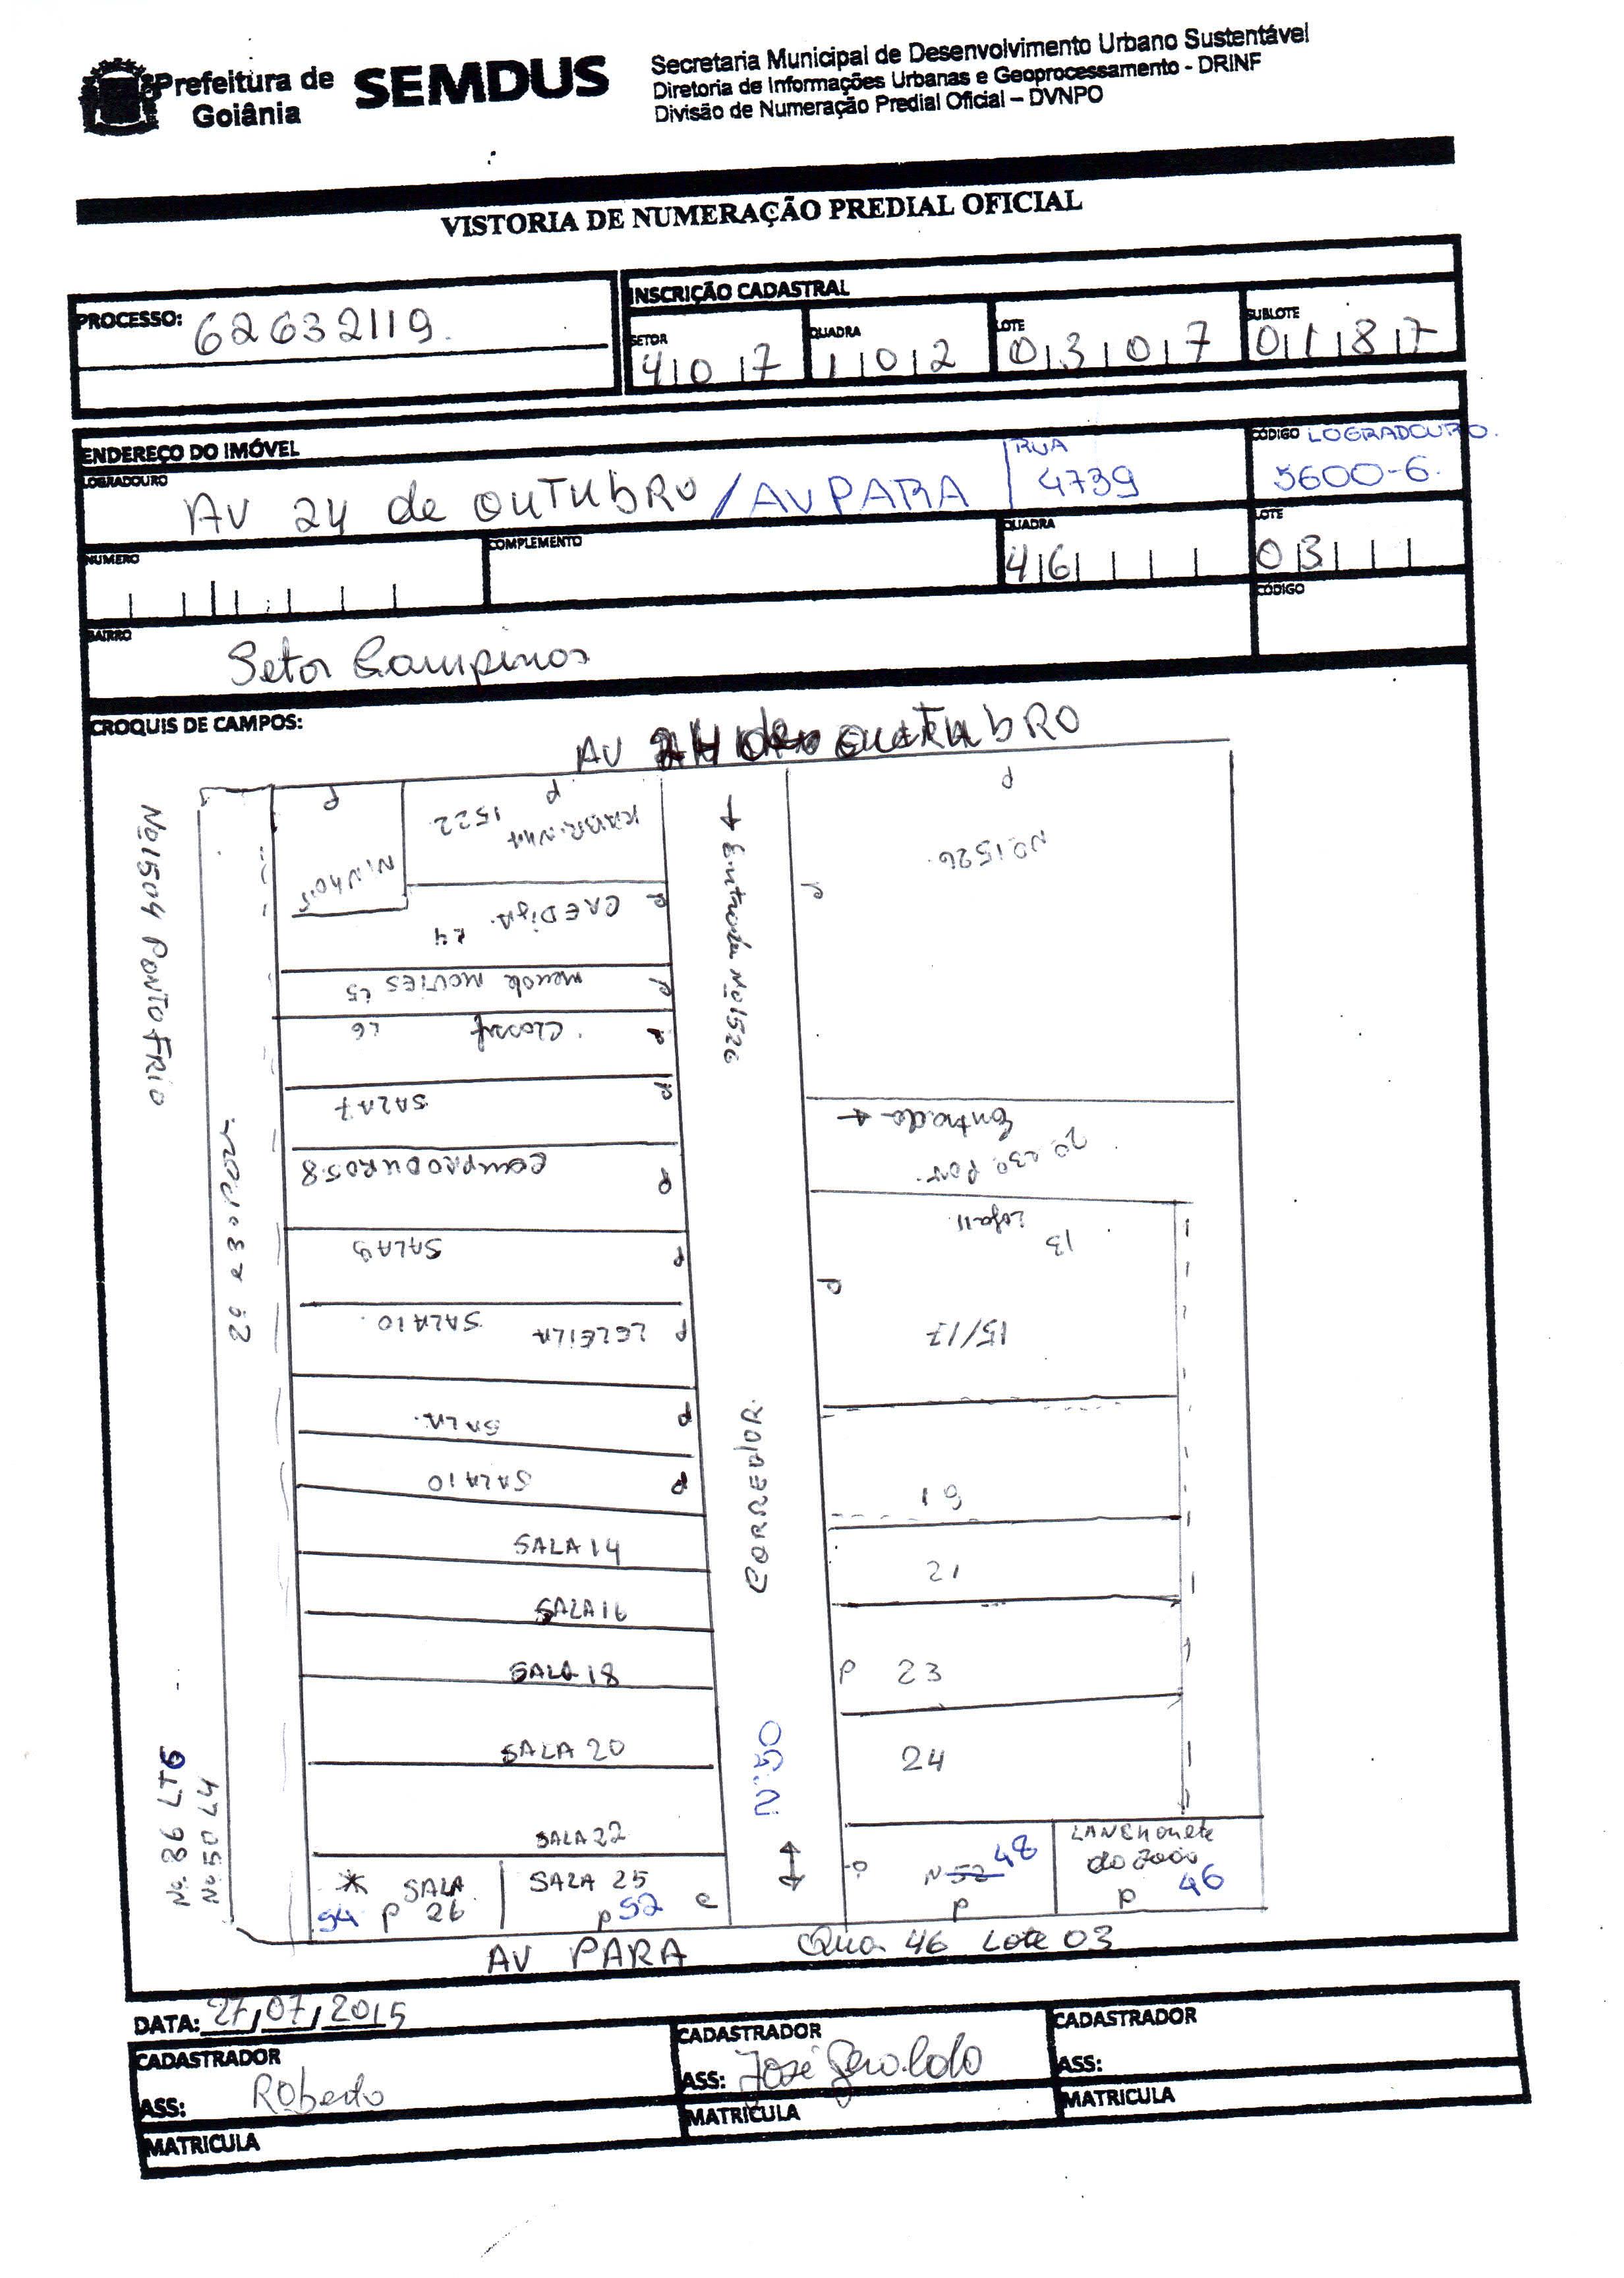 Prefeitura de Goiânia
SEMDUS
Secretaria Municipal de Desenvolvimento Urbano Sustentável
Diretoria de Informações Urbanas e Geoprocessamento - DRINF
Divisão de Numeração Predial Oficial – DVNPO
VISTORIA DE NUMERAÇÃO PREDIAL OFICIAL
PROCESSO: 62632119.
INSCRIÇÃO CADASTRAL
SETOR 407
QUADRA 102
LOTE 0307
SUBLOTE 0187
ENDEREÇO DO IMÓVEL
LOGRADOURO
AV 24 de OUTUbRO / AV PARA
RUA 4739
CÓDIGO LOGRADOURO.
5600-6.
NUMERO
COMPLEMENTO
QUADRA 46
LOTE 03
BAIRRO
Setor Campinas
CÓDIGO
CROQUIS DE CAMPOS:
AV 24 de OUTUbRO
No 1504 PONTO FRIO
P
P
P
1522
No 1526
CREDIgA. L4
P
P
→ Entrada No 1526
MOVIES L5
P
L6
P
SALA 7
P
Entrada
2º e 3º PAV.
8
P
Loja 11
13
SALA 9
P
P
LELEILA SALA 10
P
15/17
SALA
P
SALA 10
P
CORREDOR.
19
SALA 14
21
SALA 16
SALA 18
P 23
SALA 20
24
SALA 22
N. 50
No. 86 LT6
No. 50 L4
* SALA 26
54 P
SALA 25
P 52
N 52 48
P
LANCHONETE
do JOÃO
P 46
AV PARA
Qua. 46 Lote 03
DATA: 27/07/2015
CADASTRADOR
ASS: Roberto
MATRICULA
CADASTRADOR
ASS: José Geraldo
MATRICULA
CADASTRADOR
ASS:
MATRICULA